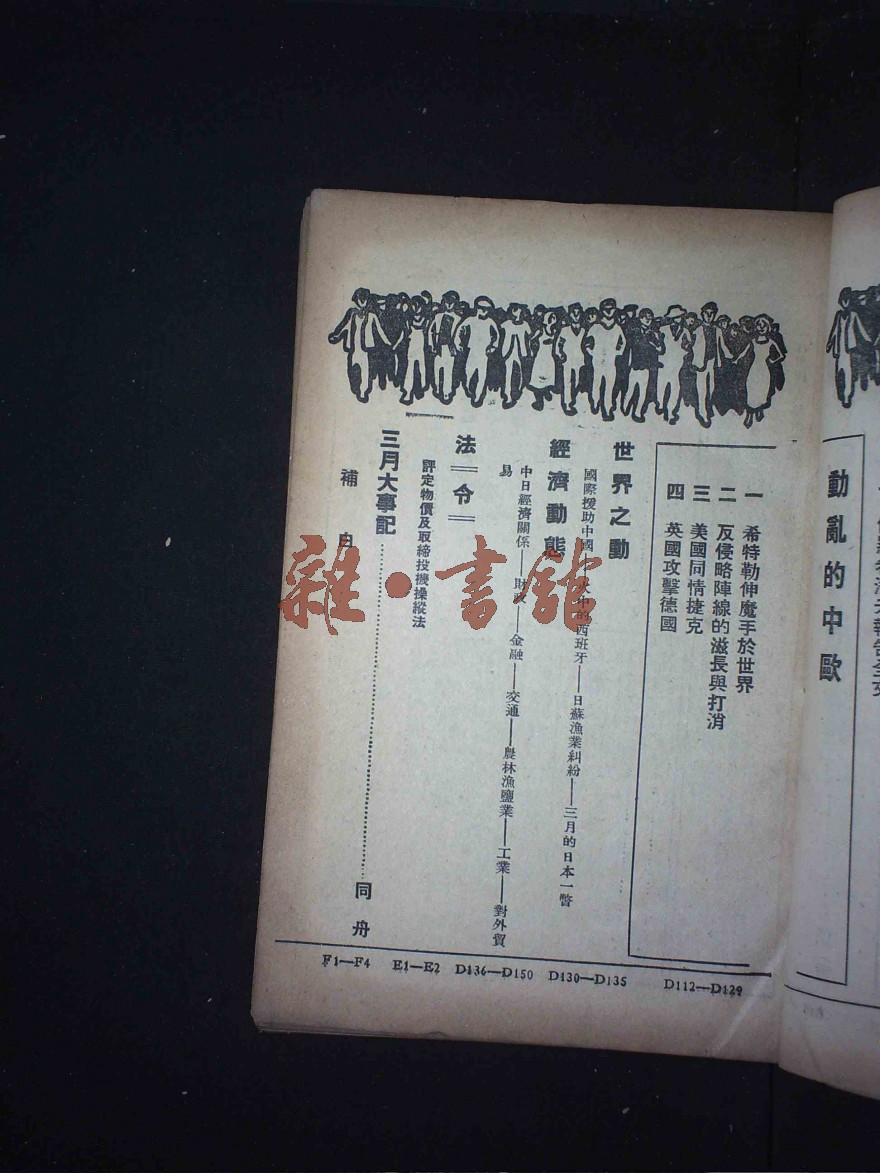 動亂的中歐
一 希特勒伸魔手於世界
二 反侵略陣線的滋長與打消
三 美國同情捷克
四 英國攻擊德國
世界之動
國際援助中國 火中的西班牙——日蘇漁業糾紛——三月的日本一瞥
經濟動態
中日經濟關係——財政——金融——交通——農林漁鹽業——工業——對外貿
易
法 令
評定物價及取締投機操縱法
三月大事記 同舟
補白
F1—F4 E1—E2 D136—D150 D130—D135 D112—D129
雜·書館